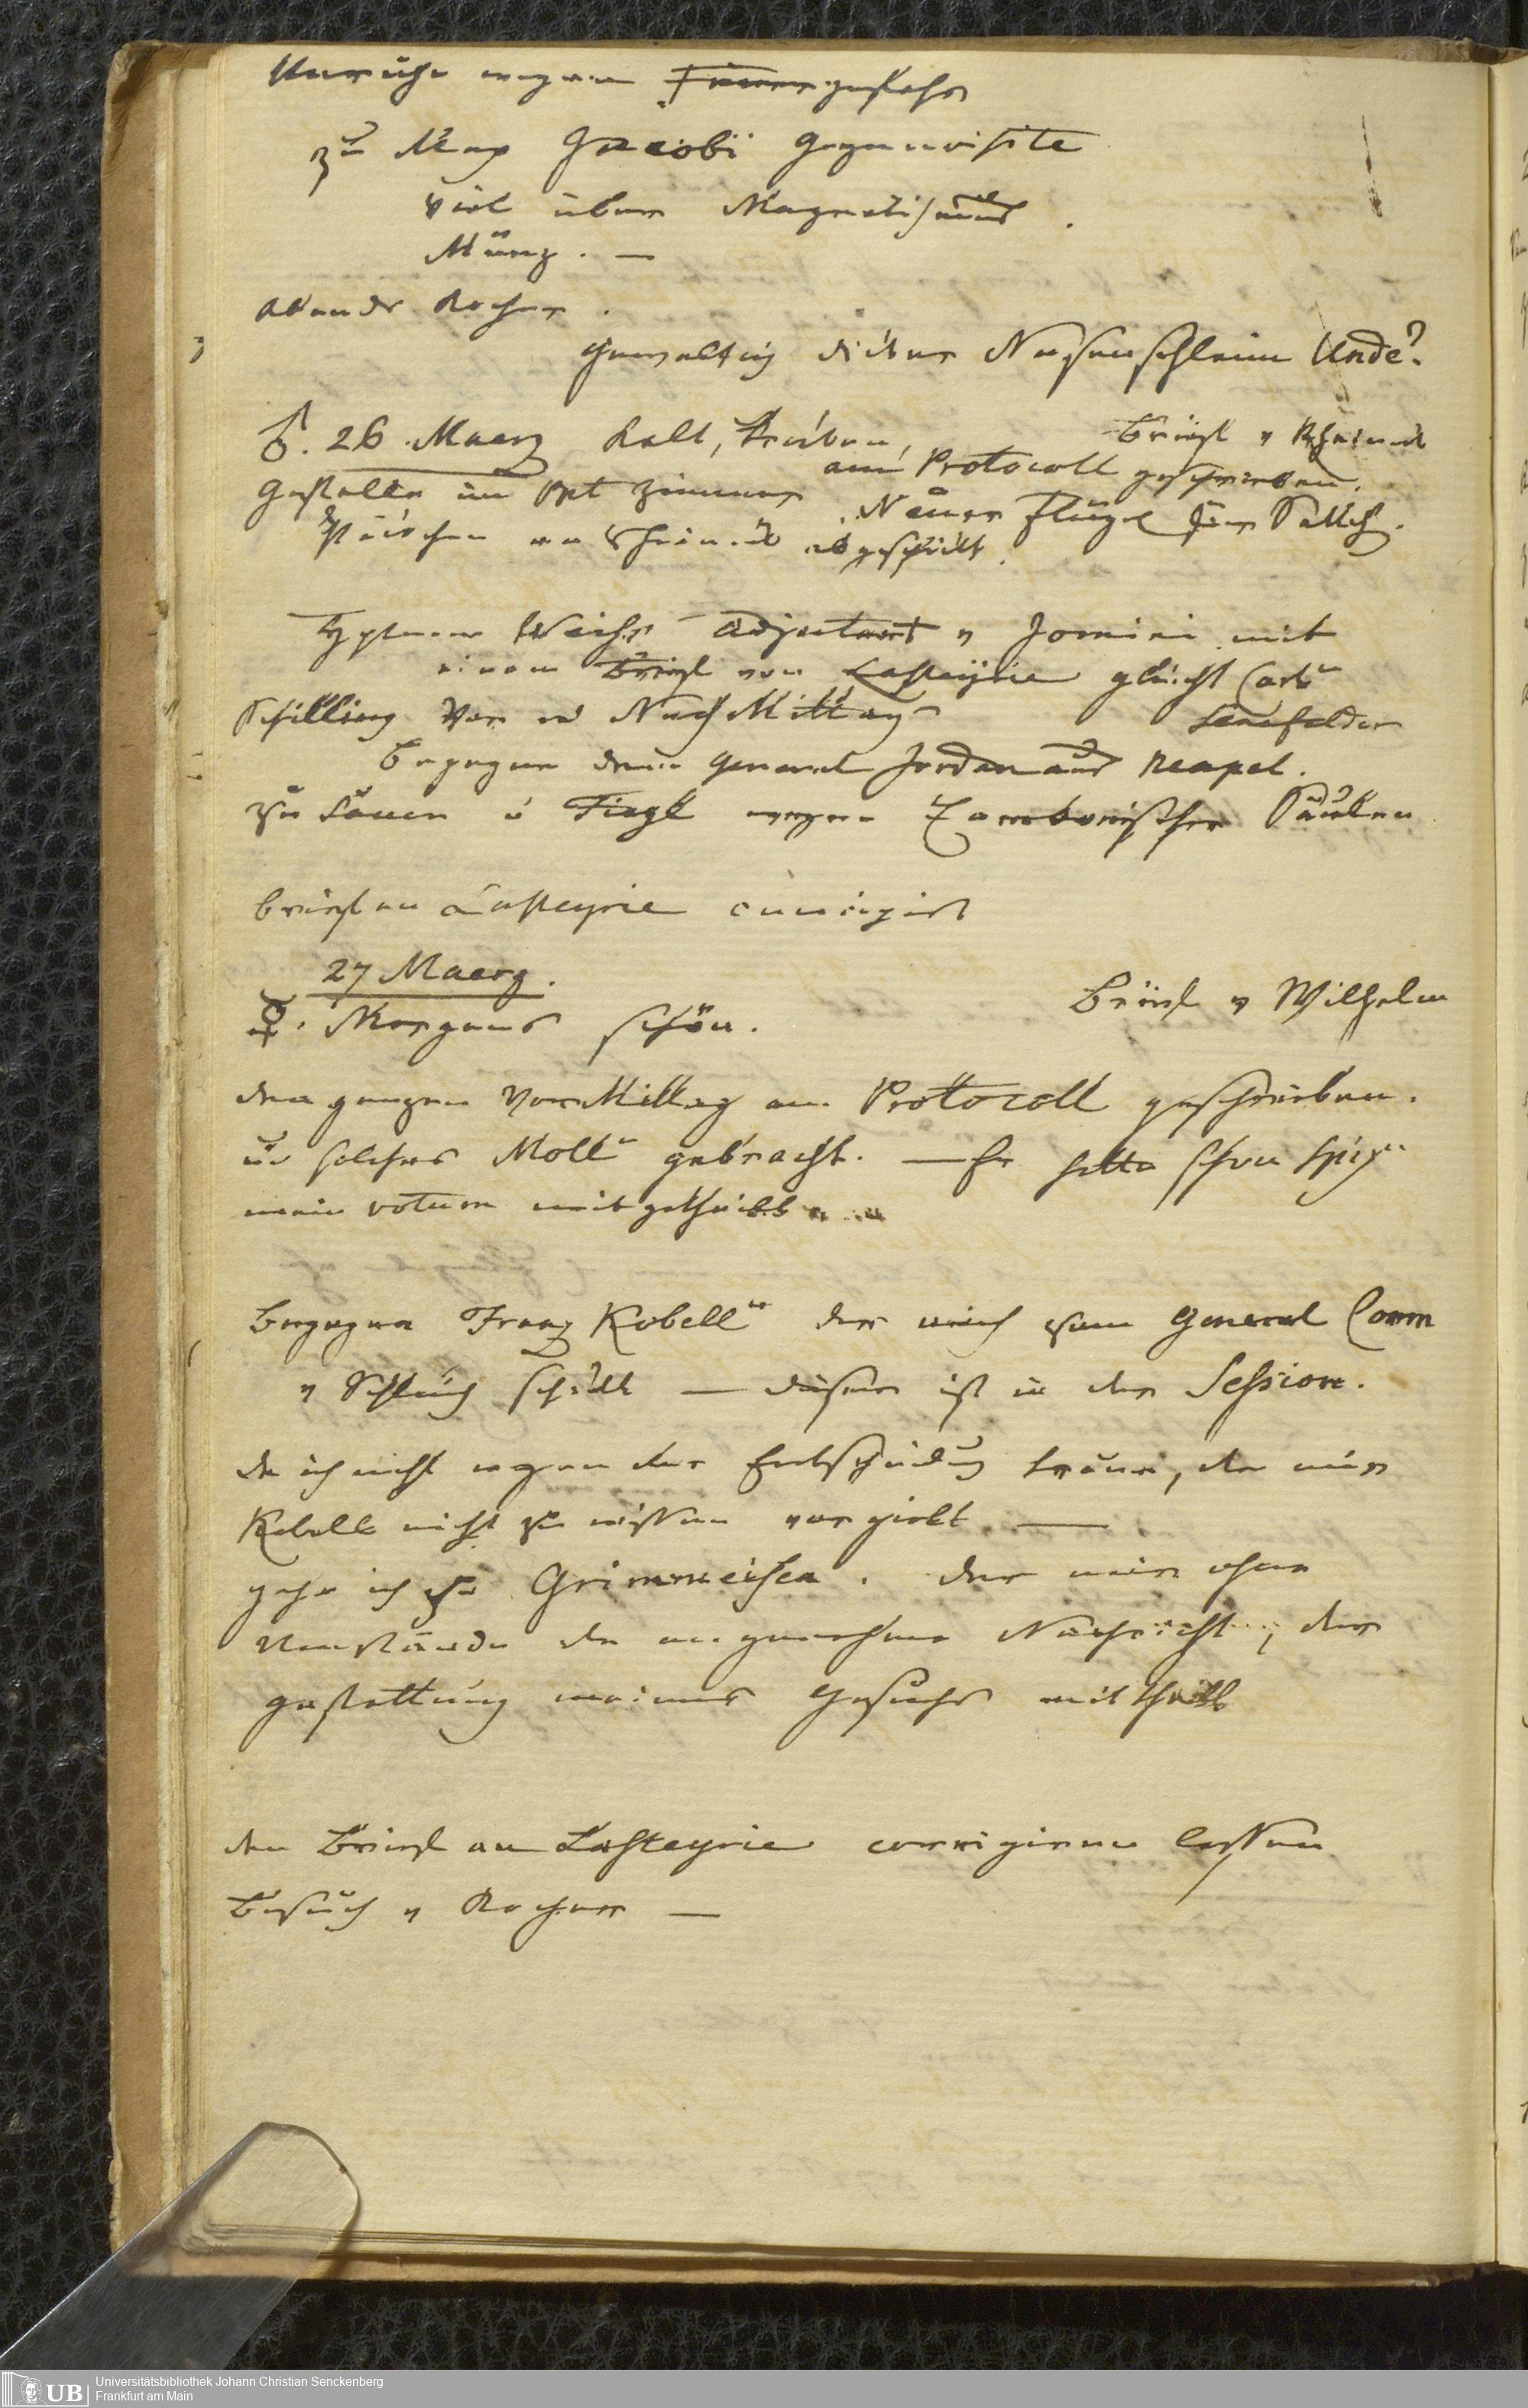 Unruhe wegen Feuersgefahr
zu Max Jacobi Gegenvisite
viel über Magnetismus.
März. —
abends Rocher.
gewaltig dicker Nasenschleim Ende?
♂. 26. Maerz kalt, trocken, Brief v Rheinwald
am Protocoll geschrieben.
Gestelle im Opt Zimmer
Neuer Flügel für
abgeschickt.
Weiss Adjutant v Jomini mit
einem Brief von Lasteyrie
Schilling Vor u NachMittag
Senefelder
begegne dem General Jordan aus Neapel.
zu Löwen u wegen Zambonischer Säulen
brief an Lasteyrie concipirt
27 Maerz.
☿. Morgens schön.
Brief v Wilhelm
den ganzen VorMittag am Protocoll geschrieben.
u solches Moll gebracht. — Er hatte schon Spix
mein votum mitgetheilt
begegne Franz Kobell der mich zum General Comm
v Schleich schickt — dieser ist in der Session.
da ich nicht wegen der Entscheidung traue, da mir
Kobell nicht zu wissen vorgiebt —
gehe ich zu Grimmeisen. der mir ohne
Umstände die angenehme Nachricht, der
gestattung meines Gesuchs mittheilt
den Brief an Lasteyrie corrigiren lassen
Besuch v Rocher —
UB
Universitätsbibliothek Johann Christian Senckenberg
Frankfurt am Main